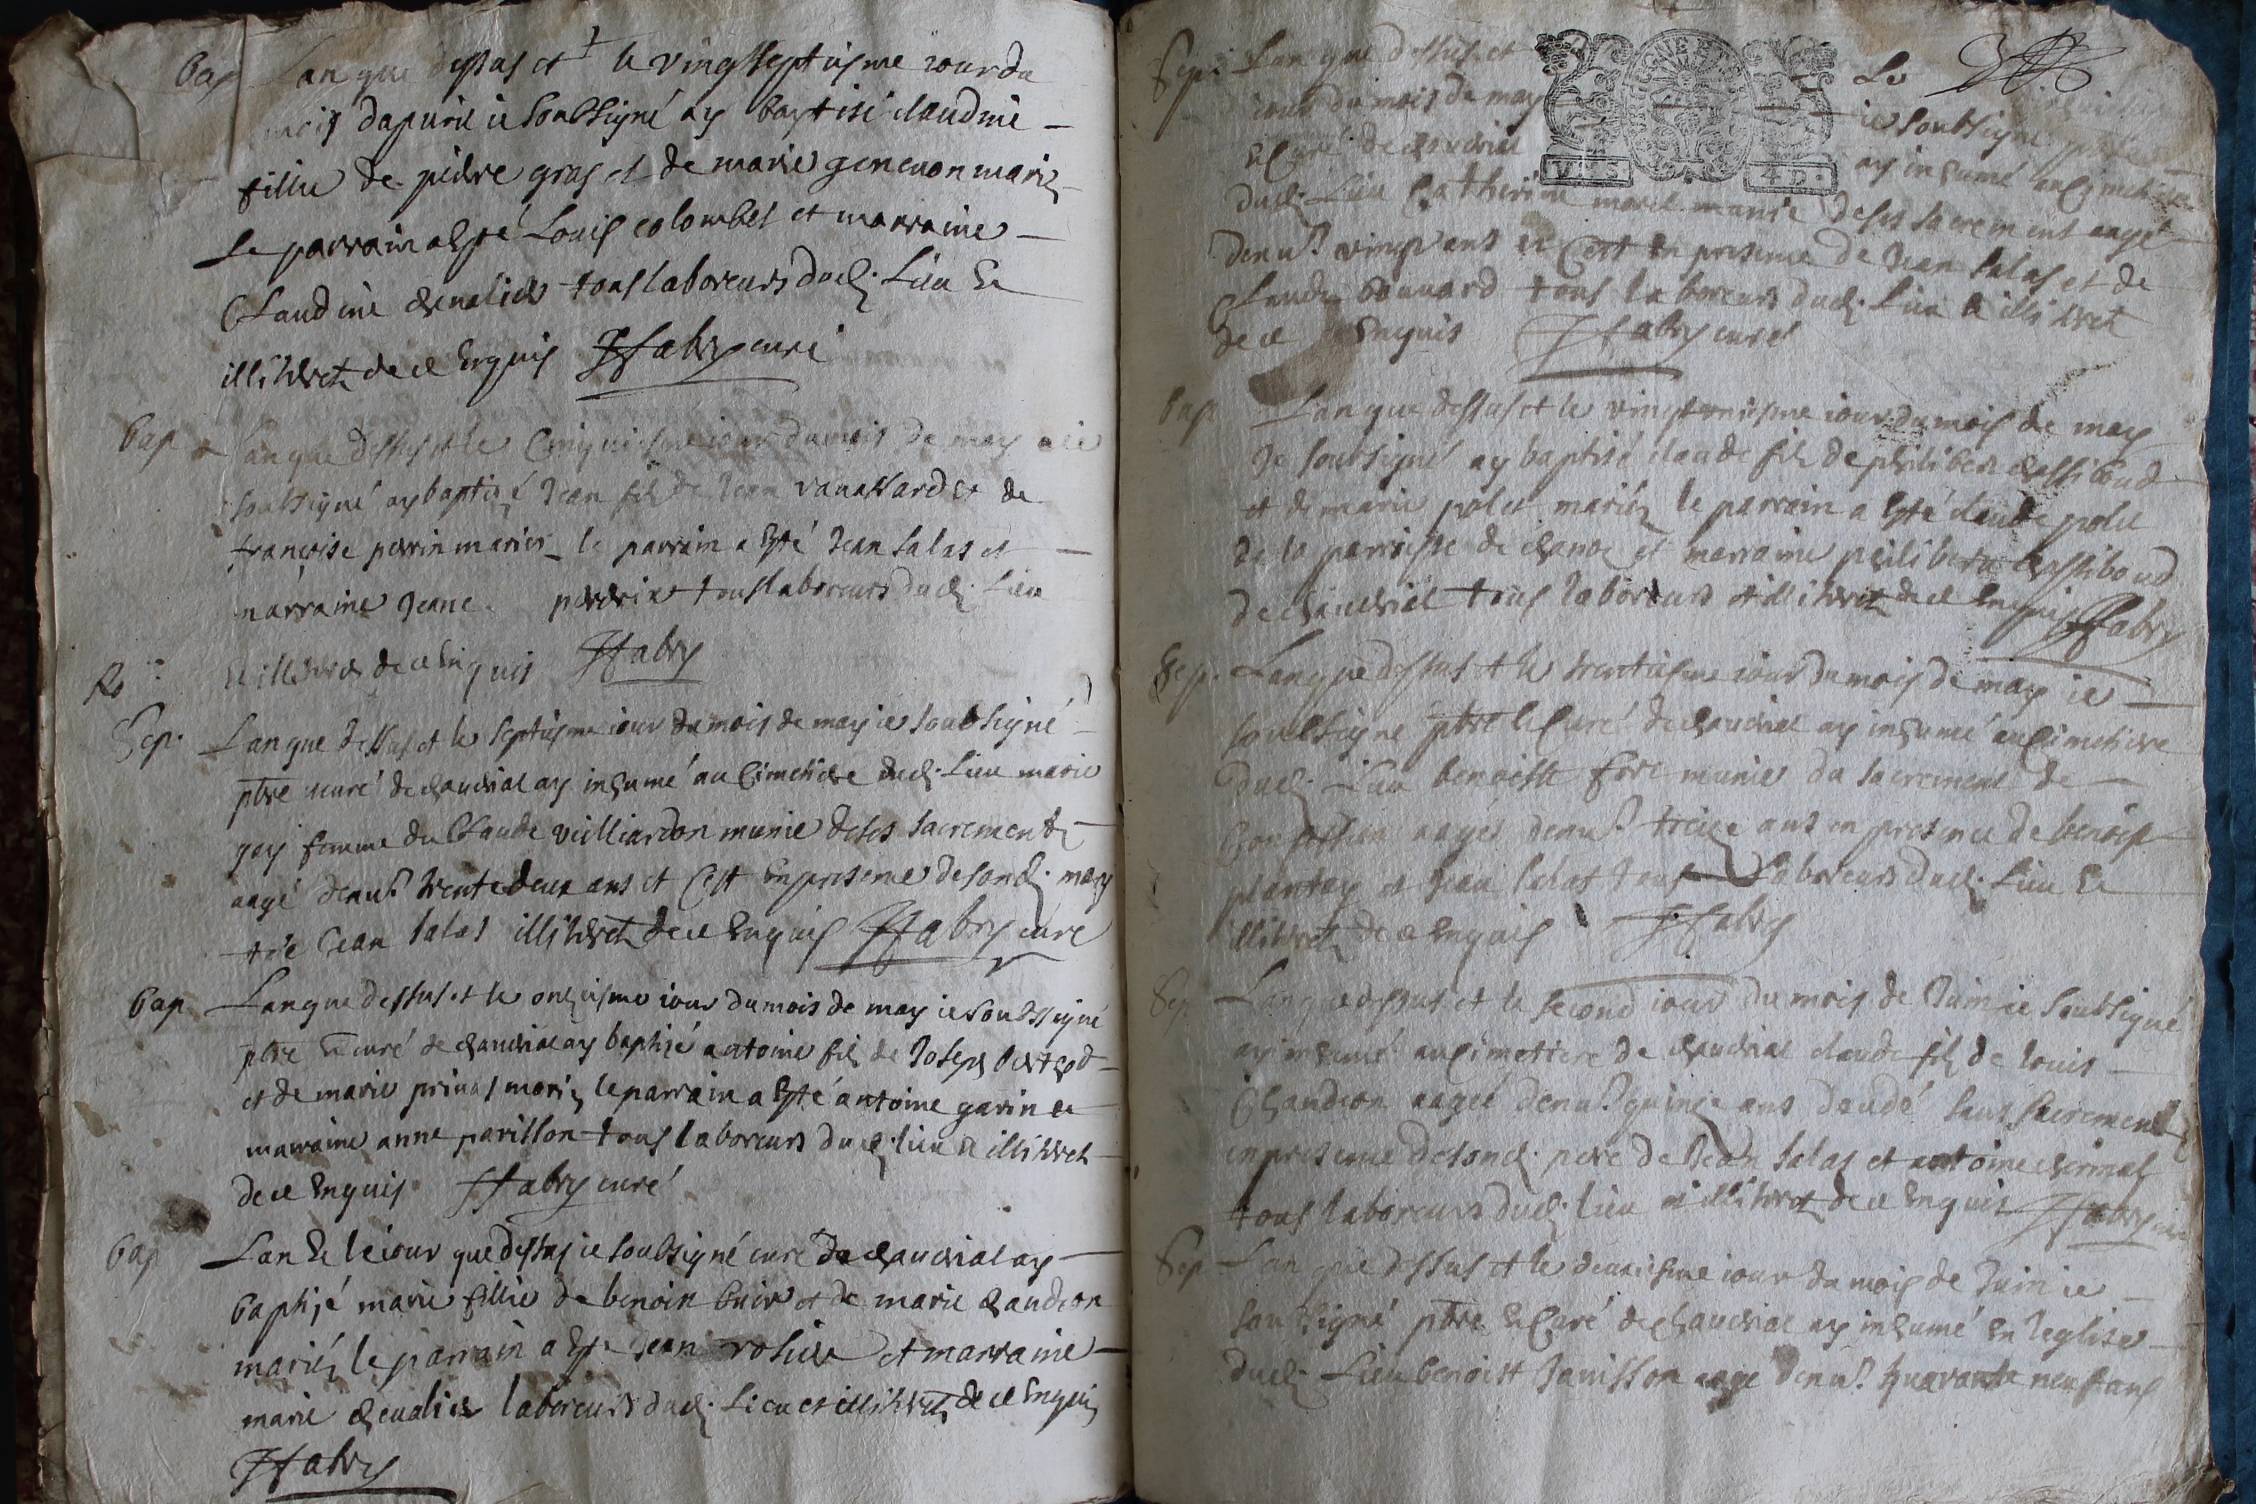 Bap Lan que dessus et le vingtseptiesme iour du
mois dapuril ie soubsigné ay baptisé claudine
fillie de pierre gras et de marie geneuon mariés
Le parrain a esté Louis colombet et marraine
Claudine cheualier tous laboreurs dud. Lieu et
illitéréz de ce Enquis JFabry curé
Bap Lan que dessus et le Cinquiesme iour du mois de may ie
soubsigné ay baptizé Jean filz de Jean vanassard et de
francoise perrin mariés le parrain a esté Jean salas et
marraine Jeane perdrix tous laboreurs dud. Lieu
et illitéréz de ce Enquis JFabry
Ro
Sep. Lan que dessus et le septiesme iour du mois de may ie soubsigné
pbre curé de chaueriat ay inhumé au Cimetiere dud. Lieu marie
goy femme du Claude vielliardon munie de ses sacrements
aagé denu.n trente deux ans et Cest en presence de sond. mary
et de Jean salas illitéréz de ce Enquis JFabry curé
Bap Lan que dessus et le onziesme iour du mois de may ie soubssigné
pbre et curé de chaueriat ay baptizé antoine filz de Joseph berthod
et de marie prinas mariéz le parrain a esté antoine garin et
marraine anne parisson tous laboreurs dud. lieu et illitéréz
de ce Enquis JFabry curé
Bap Lan et le iour que dessus ie soubsigné curé de chaueriat ay
baptizé marie fillie de benoin buir et de marie chaudron
mariéz le parrain a esté Jean rosier et marraine
marie cheualier laboreurs dud. Lieu et illitéréz de ce Enquis
JFabry
Sep. Lan que dessus et Le
iour du mois de may ie soubsigné
et Curé de chaueriat ay inhumé au Cimetiere
dud. Lieu Catherine morel munie de ses sacrement aagé
denu.n vingt ans et Cest en presence de Jean salas et de
Claude bouuard tous laboreurs dud. Lieu et illitéréz
de ce Enquis JFabry curé
bap Lan que dessus et le vingtoniesme iour du mois de may
Je soubsigné ay baptisé claude filz de philibert chassiboud
et de marie polet mariéz le parrain a esté claude polet
de la parroisse de chanoz et marraine philiberte chassiboud
de chaueriat tous laboreurs et illitéréz de ce Enquis JFabry
Sep. Lan que dessus et le trentiesme iour du mois de may ie
soubsigné pbre et Curé de chaueriat ay inhumé au Cimetiere
dud. Lieu benoiste fore munie du sacrement de
Confession aagée denu.n treize ans en presence de benoist
plantay et Jean salas tous Laboreurs dud. Lieu et
illitéréz de ce Enquis JFabry
Sep. Lan que dessus et le second iour du mois de Juin ie soubsigné
ay inhumé au Cimetiere de chaueriat claude filz de louis
Chaudron aagée denu.n quinze ans decedé sans sacrement
en presence de sond. pere de Jean salas et antoine chermat
tous laboreurs dud. lieu et illitéréz de ce Enquis JFabry curé
Sep Lan que dessus et le deuxiesme iour du mois de Juin ie
soubsigné pbre et Curé de chaueriat ay inhumé En leglise
dud. Lieu benoist Janisson aagé denu.n quarante neuf ans